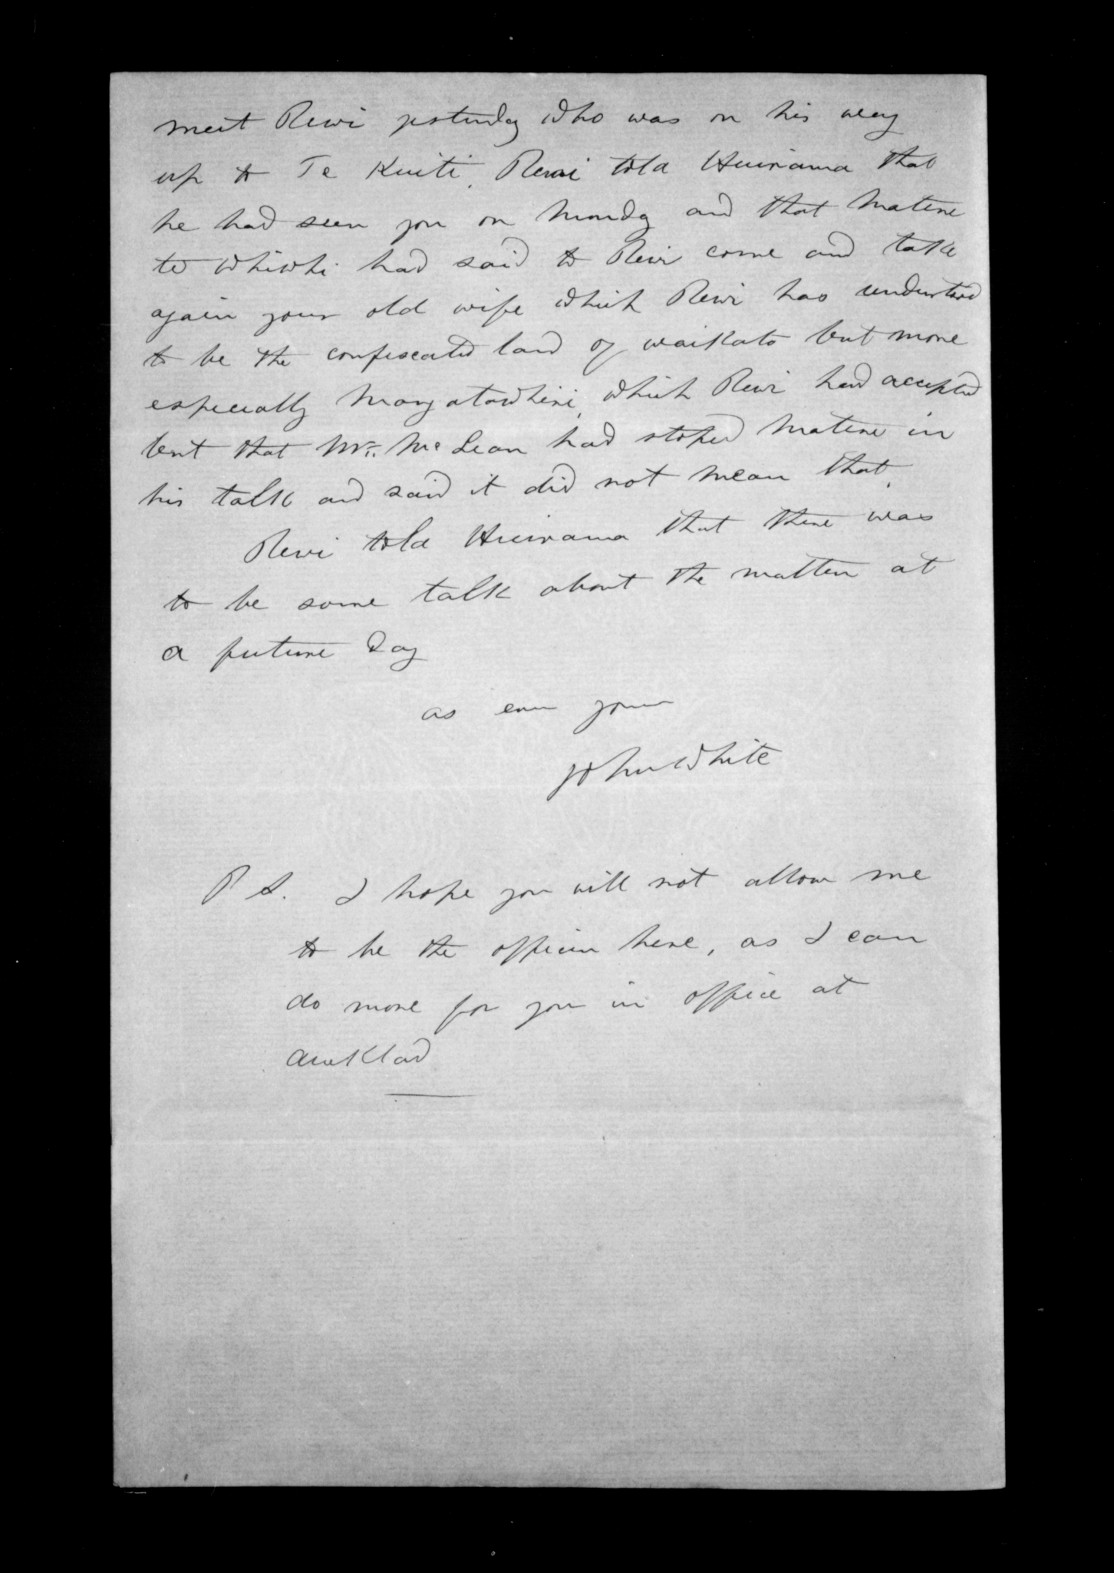 meet Rewi yesterday who was on his way
up to Te Kuiti. Rewi told Huirama that
he had seen you on Monday and that Matene
te Whiwhi had said to Rewi come and take
again your old wife which Rewi has understood
to be the confiscated land of waikato but more
especially Mangatawhiri, which Rewi had accepted
but that Mr. McLean had stoped Matene in
his talk and said it did not mean that.
Rewi told Huirama that there was
to be some talk about the matter at
a future Day
as ever yours
John White
P S. I hope you will not allow me
to be the officer here, as I can
do more for you in office at
Aukland